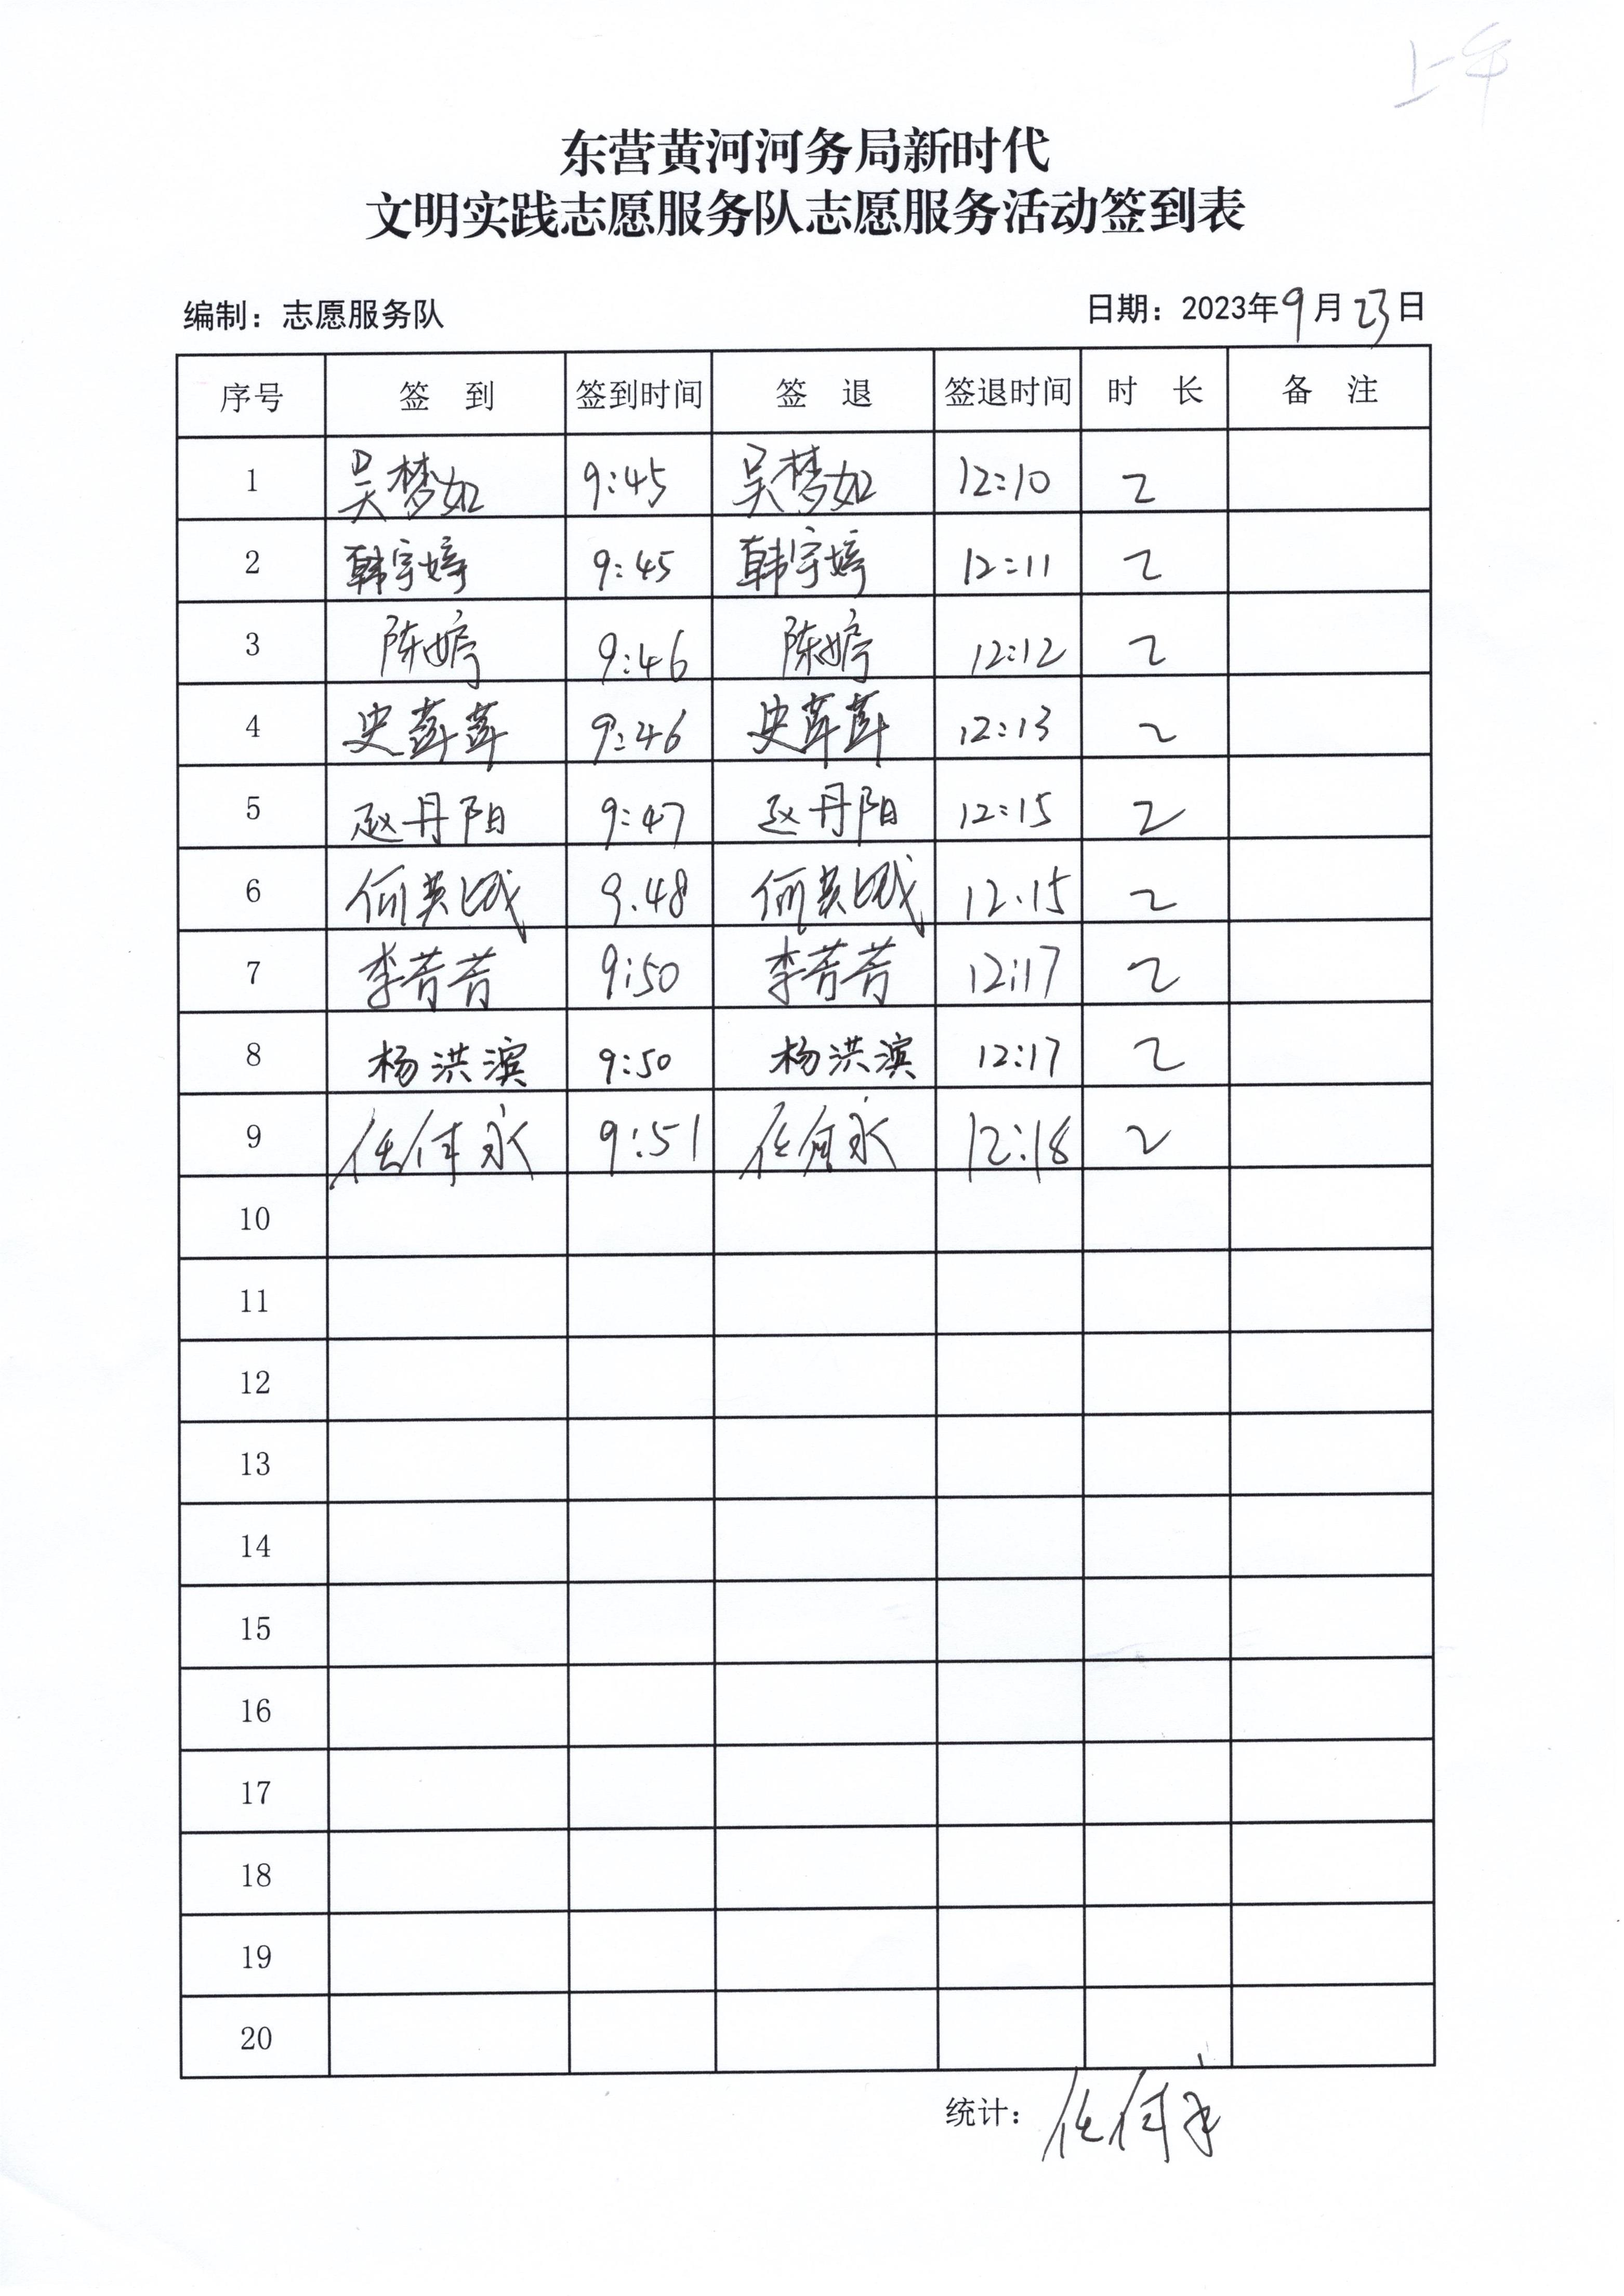 上午
东营黄河河务局新时代
文明实践志愿服务队志愿服务活动签到表
编制：志愿服务队 日期：2023年9月23日
序号 签 到 签到时间 签 退 签退时间 时 长 备 注
1 吴梦如 9:45 吴梦如 12:10 2
2 韩宇婷 9:45 韩宇婷 12:11 2
3 陈婷 9:46 陈婷 12:12 2
4 史 9:46 史 12:13 2
5 赵丹阳 9:47 赵丹阳 12:15 2
6 何英城 9.48 何英城 12.15 2
7 李菁菁 9:50 李菁菁 12:17 2
8 杨洪滨 9:50 杨洪滨 12:17 2
9 任 永 9:51 任 永 12:18 2
10
11
12
13
14
15
16
17
18
19
20
统计：任